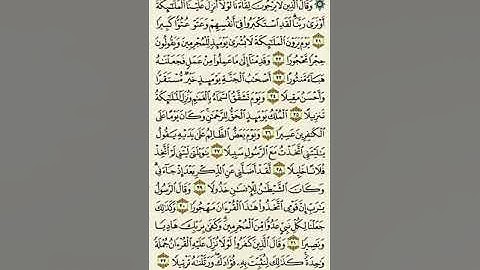 ۞ وَقَالَ ٱلَّذِينَ لَا يَرْجُونَ لِقَآءَنَا لَوْلَآ أُنزِلَ عَلَيْنَا ٱلْمَلَٰٓئِكَةُ
أَوْ نَرَىٰ رَبَّنَا لَقَدِ ٱسْتَكْبَرُوا۟ فِىٓ أَنفُسِهِمْ وَعَتَوْ عُتُوًّا كَبِيرًا
٢١ يَوْمَ يَرَوْنَ ٱلْمَلَٰٓئِكَةَ لَا بُشْرَىٰ يَوْمَئِذٍ لِّلْمُجْرِمِينَ وَيَقُولُونَ
حِجْرًا مَّحْجُورًا ٢٢ وَقَدِمْنَآ إِلَىٰ مَا عَمِلُوا۟ مِنْ عَمَلٍ فَجَعَلْنَٰهُ
هَبَآءً مَّنثُورًا ٢٣ أَصْحَٰبُ ٱلْجَنَّةِ يَوْمَئِذٍ خَيْرٌ مُّسْتَقَرًّا
وَأَحْسَنُ مَقِيلًا ٢٤ وَيَوْمَ تَشَقَّقُ ٱلسَّمَآءُ بِٱلْغَمَٰمِ وَنُزِّلَ ٱلْمَلَٰٓئِكَةُ
تَنزِيلًا ٢٥ ٱلْمُلْكُ يَوْمَئِذٍ ٱلْحَقُّ لِلرَّحْمَٰنِ وَكَانَ يَوْمًا عَلَى
ٱلْكَٰفِرِينَ عَسِيرًا ٢٦ وَيَوْمَ يَعَضُّ ٱلظَّالِمُ عَلَىٰ يَدَيْهِ يَقُولُ
يَٰلَيْتَنِى ٱتَّخَذْتُ مَعَ ٱلرَّسُولِ سَبِيلًا ٢٧ يَٰوَيْلَتَىٰ لَيْتَنِى لَمْ أَتَّخِذْ
فُلَانًا خَلِيلًا ٢٨ لَّقَدْ أَضَلَّنِى عَنِ ٱلذِّكْرِ بَعْدَ إِذْ جَآءَنِى
وَكَانَ ٱلشَّيْطَٰنُ لِلْإِنسَٰنِ خَذُولًا ٢٩ وَقَالَ ٱلرَّسُولُ
يَٰرَبِّ إِنَّ قَوْمِى ٱتَّخَذُوا۟ هَٰذَا ٱلْقُرْءَانَ مَهْجُورًا ٣٠ وَكَذَٰلِكَ
جَعَلْنَا لِكُلِّ نَبِىٍّ عَدُوًّا مِّنَ ٱلْمُجْرِمِينَ وَكَفَىٰ بِرَبِّكَ هَادِيًا
وَنَصِيرًا ٣١ وَقَالَ ٱلَّذِينَ كَفَرُوا۟ لَوْلَا نُزِّلَ عَلَيْهِ ٱلْقُرْءَانُ جُمْلَةً
وَٰحِدَةً كَذَٰلِكَ لِنُثَبِّتَ بِهِۦ فُؤَادَكَ وَرَتَّلْنَٰهُ تَرْتِيلًا ٣٢